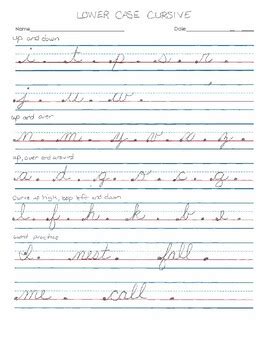 LOWER CASE CURSIVE
Name Date
up and down
i. t. p. s. r.
j. u. w.
up and over
n. m. y. v. x. z.
up, over and around
a. d. g. o. c. q.
Curve up high, loop left and down
l. f. h. k. b. e.
word practice
nest. fall.
me. call.